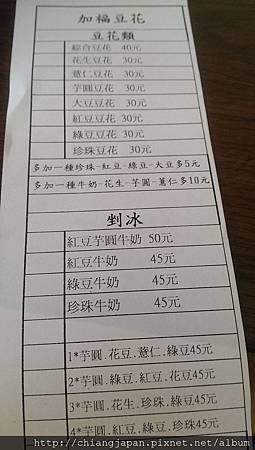 加福豆花
豆花類
綜合豆花 40元
花生豆花 30元
薏仁豆花 30元
芋圓豆花 30元
大豆豆花 30元
紅豆豆花 30元
綠豆豆花 30元
珍珠豆花 30元
多加一種珍珠-紅豆-綠豆-大豆多5元
多加一種牛奶-花生-芋圓-薏仁多10元
剉冰
紅豆芋圓牛奶 50元
紅豆牛奶 45元
綠豆牛奶 45元
珍珠牛奶 45元
1*芋圓.花豆.薏仁.綠豆45元
2*芋圓.綠豆.紅豆.花豆45元
3*芋圓.花生.珍珠.綠豆45元
4*芋圓.紅豆.綠豆.珍珠45元
http://chiangjapan.pixnet.net/album